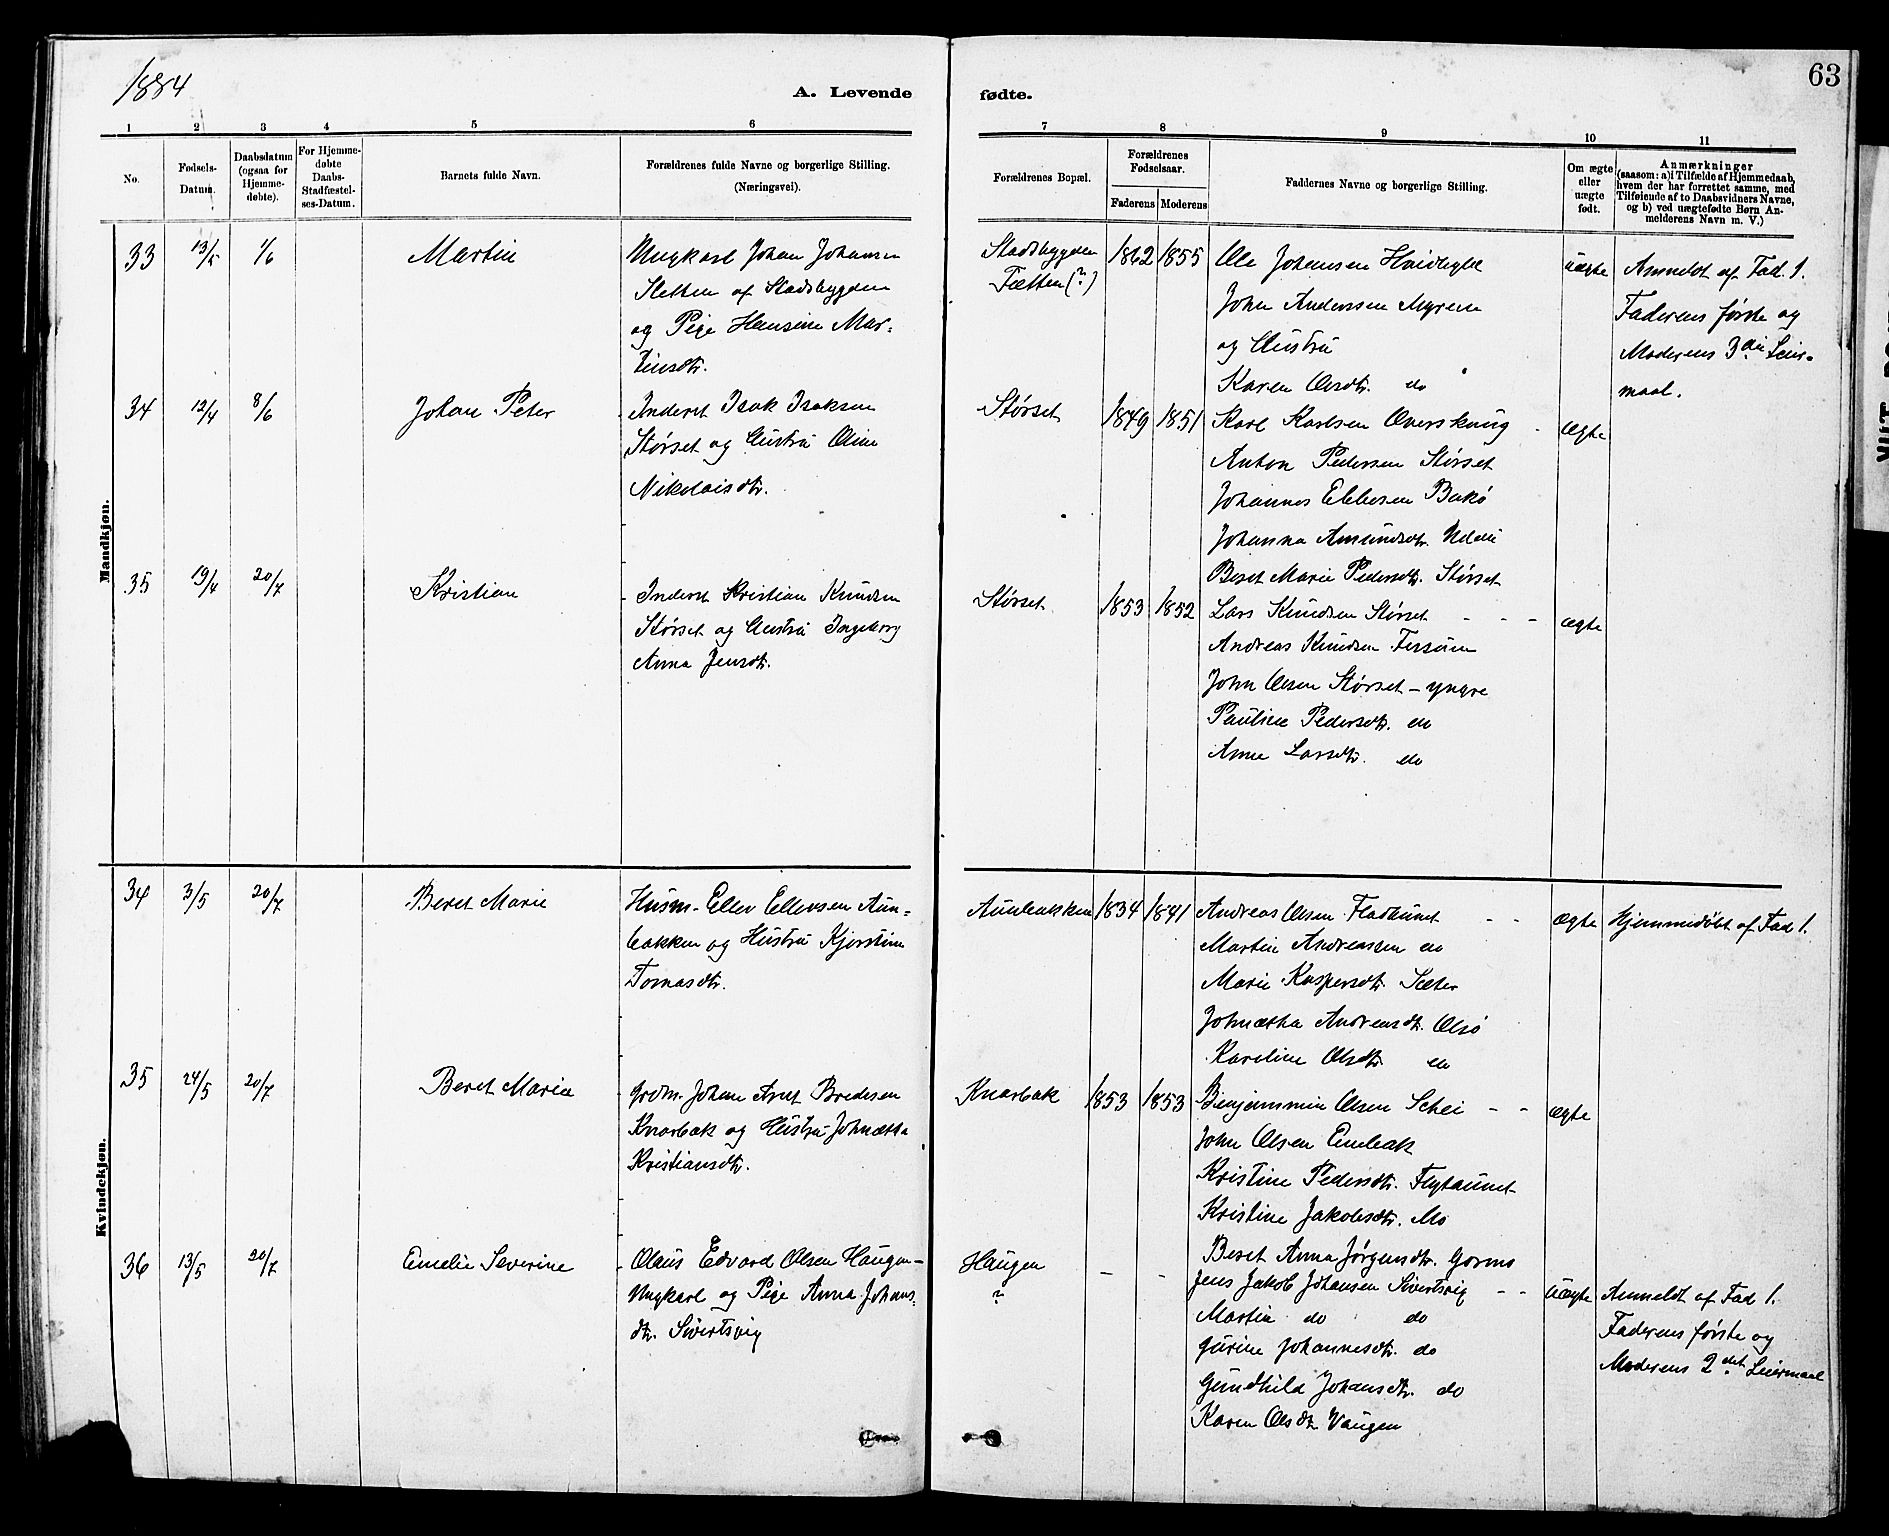 1884
A. Levende fødte.
63
1 2 3 4 5 6 7 8 9 10 11
No.
Fødsels-
Datum.
Daabsdatum
(ogsaa for
Hjemme-
døbte).
For Hjemme-
døbte
Daabs-
Stadfæstel-
ses-Datum.
Barnets fulde Navn.
Forældrenes fulde Navne og borgerlige Stilling.
(Næringsvei).
Forældrenes Bopæl.
Forældrenes
Fødselsaar.
Faderens Moderens
Faddernes Navne og borgerlige Stilling.
Om ægte
eller
uægte
født.
Anmærkninger
(saasom: a) i Tilfælde af Hjemmedaab,
hvem der har forrettet samme, med
Tilføiende af to Daabsvidners Navne,
og b) ved uægtefødte Børn An-
melderens Navn m. V.)
Mandkjøn.
33 13/5 1/6 Martin
Ungkarl Johan Johansen
Sletten af Stadsbygden
og Pige Hansine Mar-
tinsdtr.
Stadsbygden
Fætten (?)
1862 1855
Ole Johansen
John Anderssen Myren
og Hustru
Karen Olsdtr. do
uægte
Anmeldt af Fad. 1.
Faderens første og
Moderens 3die Leier-
maal.
34 12/4 8/6 Johan Peter
Inderst Isak Isaksen
Størset og Hustru Oline
Nikolaisdtr.
Størset
1849 1851
Karl Karlsen Overskoug
Anton Pedersen Størset
Johannes Ebbesen Bakø
Johanna Amundsdtr.
Beret Marie Pedersdtr. Størset
ægte
35 19/4 20/7 Kristian
Inderst Kristian Knudsen
Størset og Hustru Ingeborg
Anna Jensdtr.
Størset
1853 1852
Lars Knudsen Størset - - -
Andreas Knudsen
John Olsen Størset - yngre
Pauline Pedersdtr. do
Anne Larsdtr. do
ægte
Kvindekjøn.
34 3/5 20/7 Beret Marie
Husm. Ellev Ellevsen Aun-
bakken og Hustru Kjerstine
Tomasdtr.
Aunbakken
1834 1841
Andreas Olsen Fladaunet - -
Martin Andreassen do
Marie Kaspersdtr. Sæter
Johnætha Andreasdtr. Olsø
Karoline Olsdtr. do
ægte
Hjemmedøbt af Fad 1.
35 24/5 20/7 Beret Marie
Grdm. Johan Arnt Bredesen
Knarbak og Hustru Johnætha
Kristiansdtr.
Knarbak
1853 1853
Benjammin Olsen Schei - -
John Olsen
Kristine Pedersdtr. Flytaunet
Kristine Jakobsdtr. Mo
Beret Anna Jørgensdtr.
ægte
36 13/5 20/7 Emelie Severine
Olaus Edvard Olsen Haugen-
Ungkarl og Pige Anna Johans-
dtr. Sivertsvig
Haugen
?
- -
Jens Jakob Johansen Sivertsvig - -
Martin do do
Gurine Johannesdtr. do
Gundhild Johansdtr. do
Karen Olsdtr Vaugen
uægte
Anmeldt af Fad 1.
Faderens første og
Moderens 2det Leiermaal